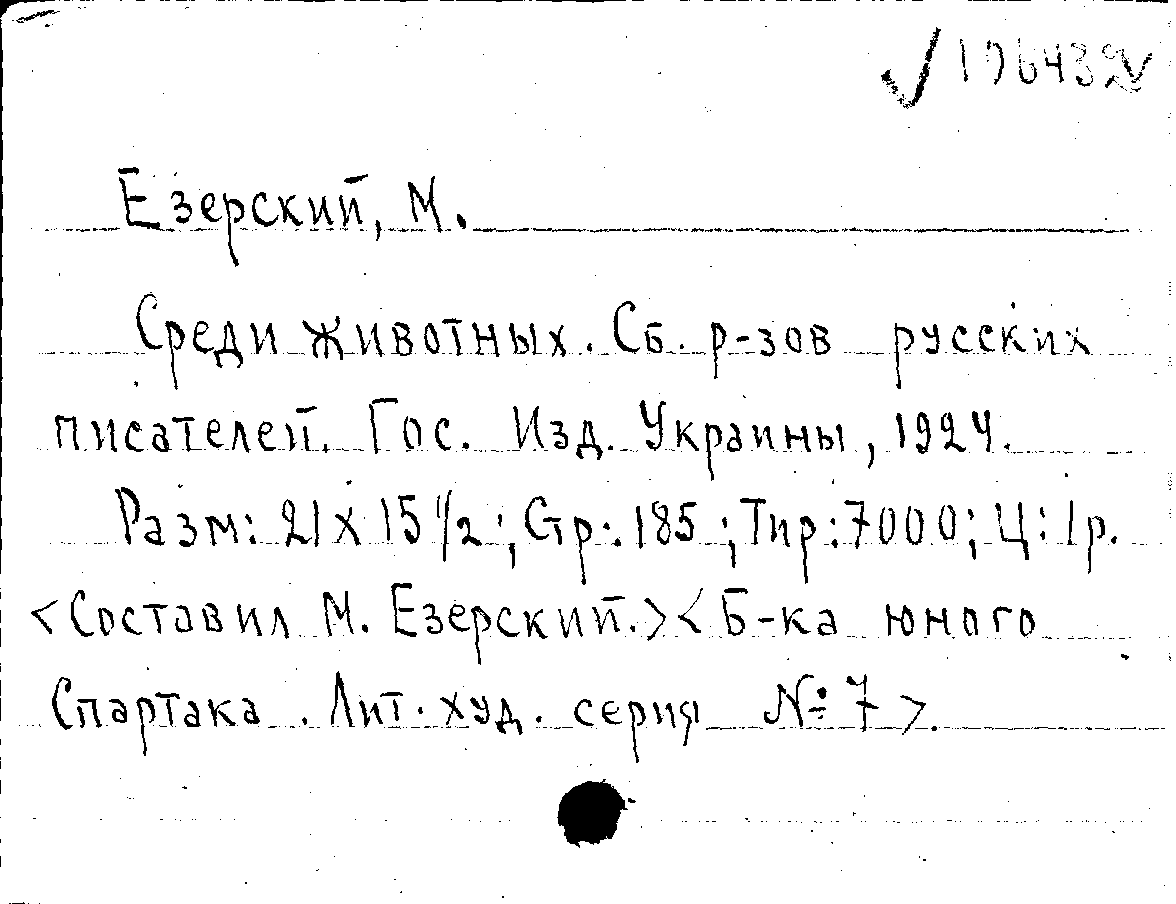 Езерский, М.
Среди животных. Сб. р-зов русских
писателей. Гос. Изд. Украины, 1924.
Разм: 21 х 15 1/2; Стр: 185; Тир: 7000; Ц: 1р.
<Составил М. Езерский.> <Б-ка юного
Спартака. Лит. худ. серия № 7>.